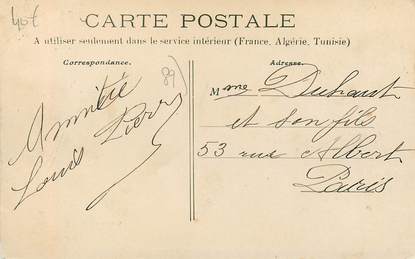 40€
CARTE POSTALE
A utiliser seulement dans le service intérieur (France, Algérie, Tunisie)
Correspondance.
Adresse.
89)
Amitié
Louis
Mme Duhaut
et son fils
53 rue Albert
Paris